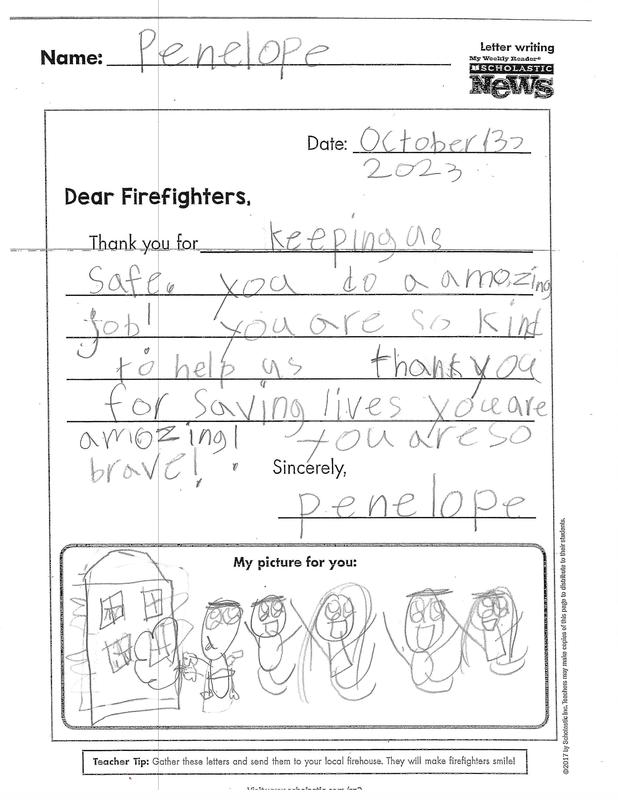 Name: Penelope
Letter writing
My Weekly Reader®
SCHOLASTIC
NeWS
Date: October 13,
2023
Dear Firefighters,
Thank you for keeping us
safe. you do a amozing
job! you are so kind
to help us thank you
for saving lives you are
amozing! you are so
brave!
Sincerely,
penelope
My picture for you:
©2017 by Scholastic Inc. Teachers may make copies of this page to distribute to their students.
Teacher Tip: Gather these letters and send them to your local firehouse. They will make firefighters smile!